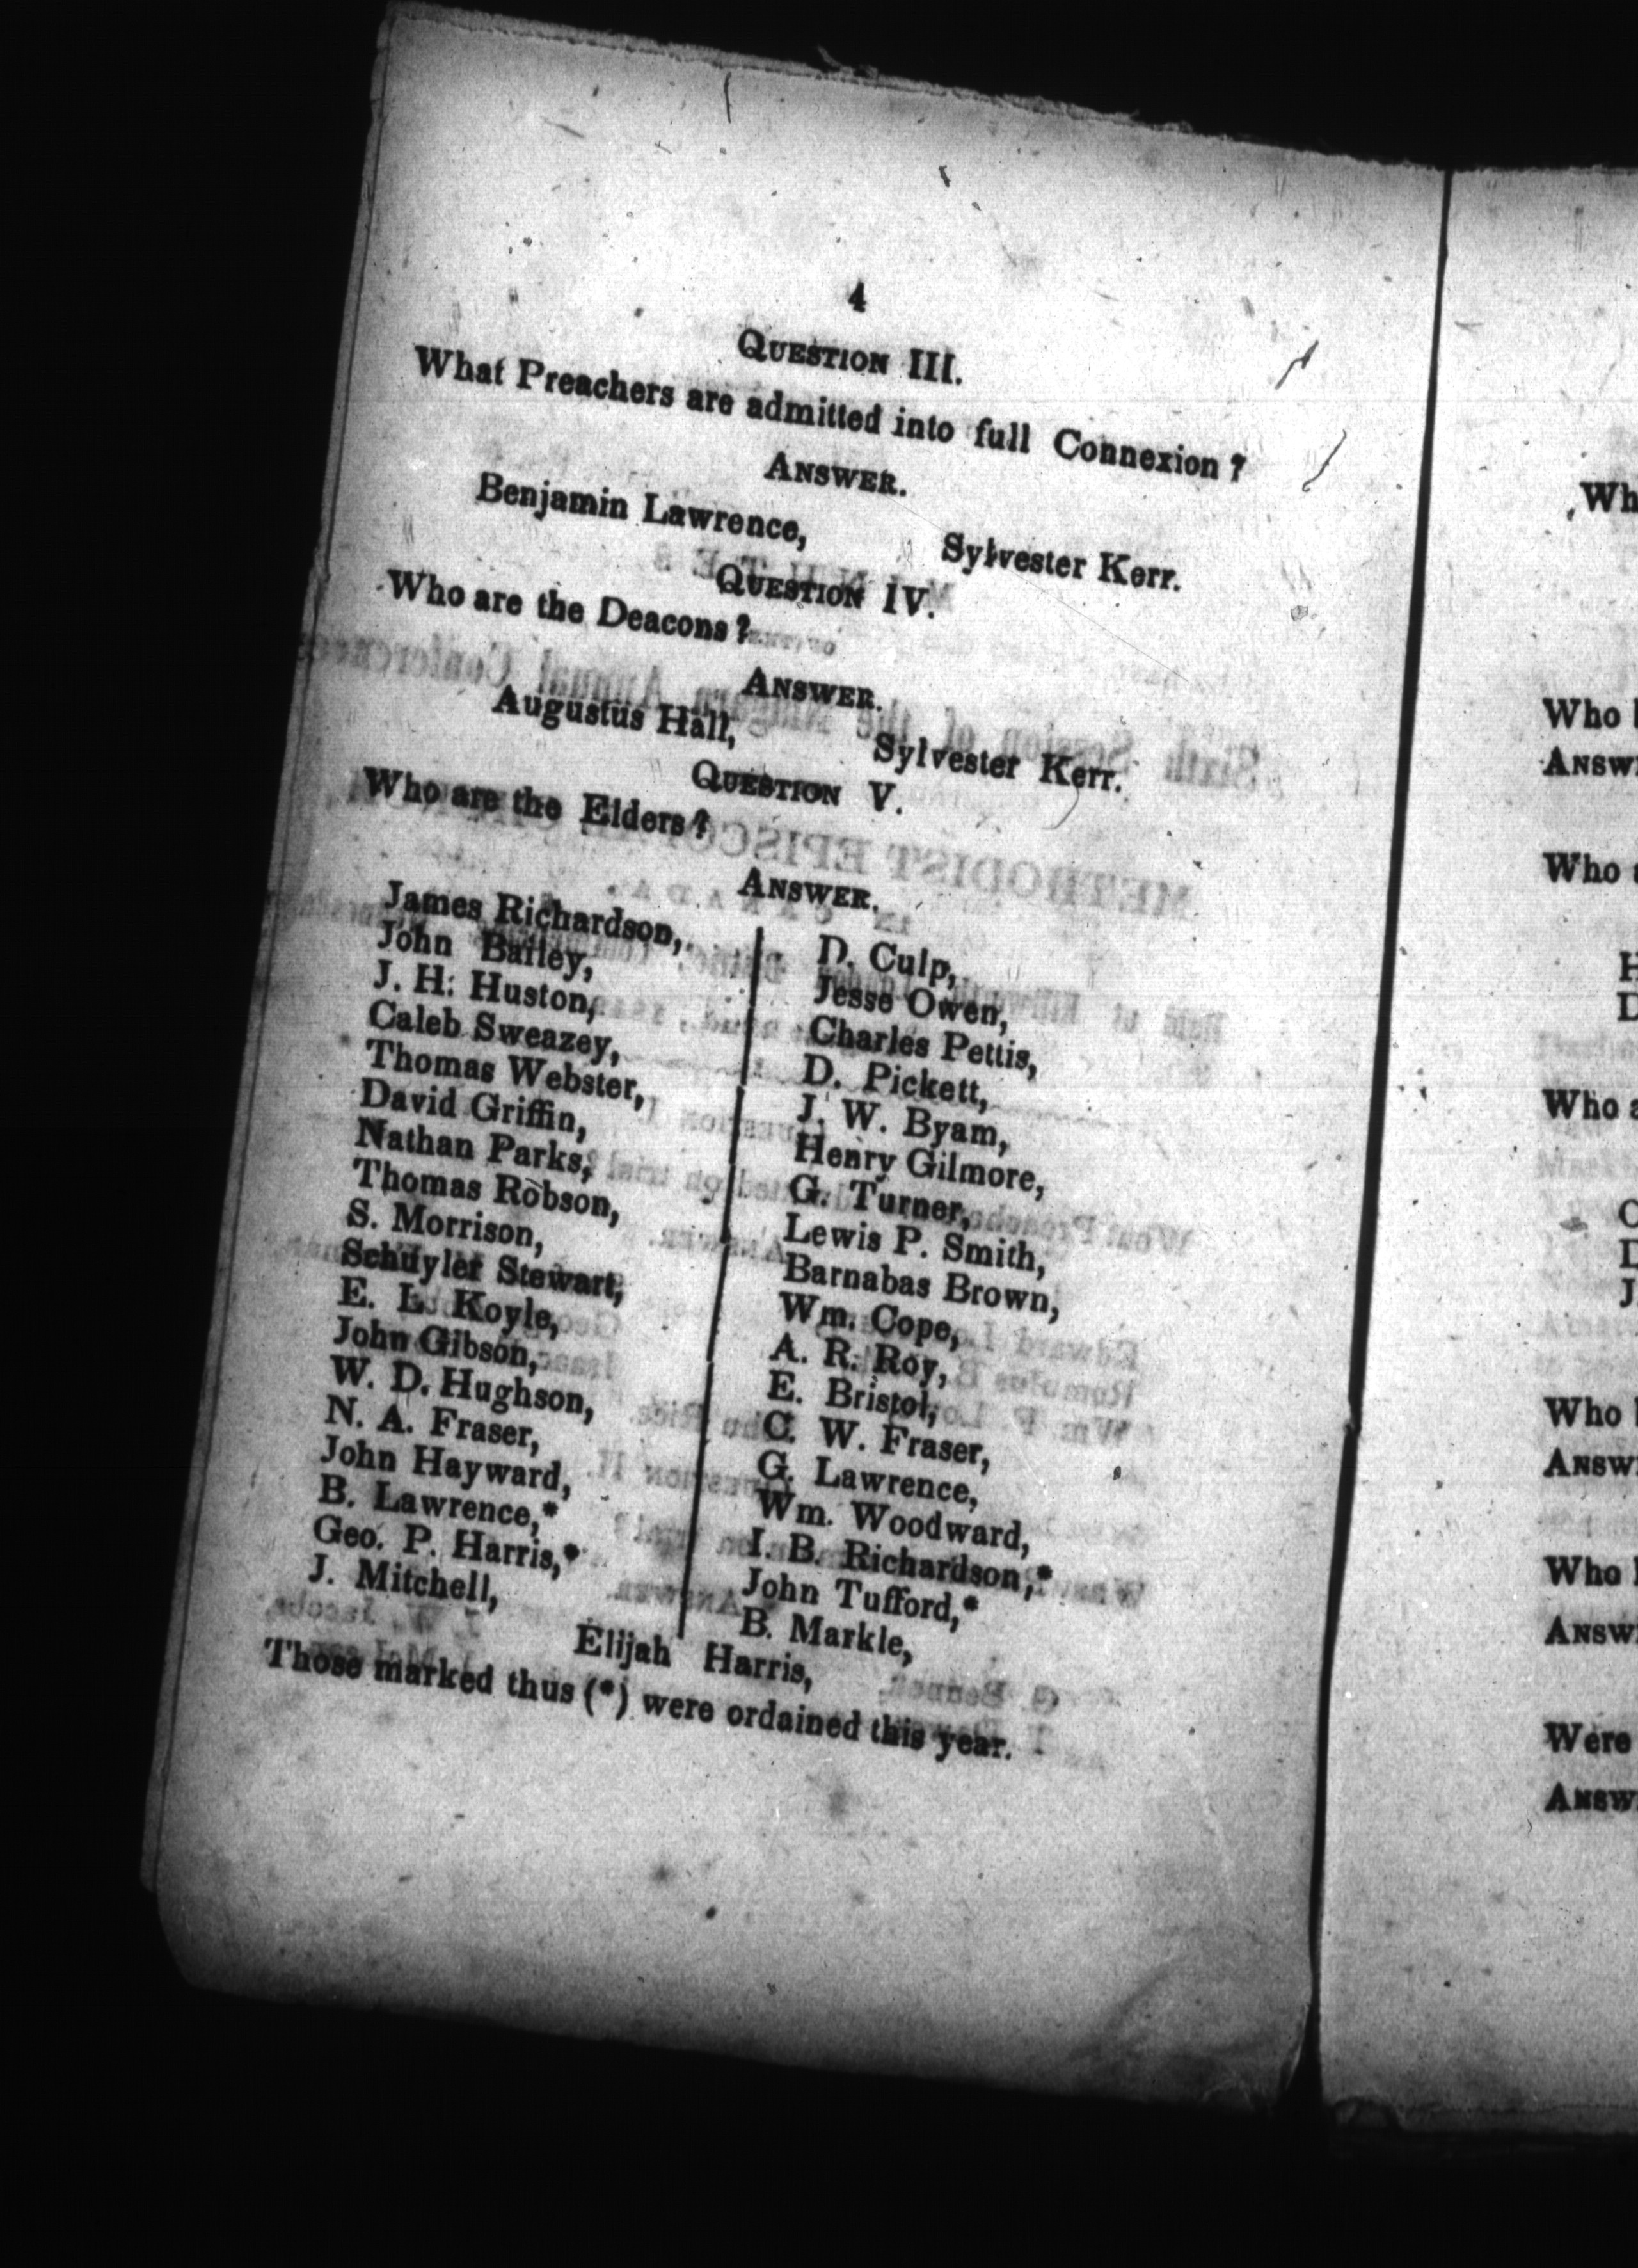 4
QUESTION III.
What Preachers are admitted into full Connexion?
ANSWER.
Benjamin Lawrence, Sylvester Kerr.
QUESTION IV.
Who are the Deacons?
ANSWER.
Augustus Hall, Sylvester Kerr.
QUESTION V.
Who are the Elders?
ANSWER.
James Richardson,
John Bailey,
J. H. Huston,
Caleb Sweazey,
Thomas Webster,
David Griffin,
Nathan Parks,
Thomas Robson,
S. Morrison,
Schuyler Stewart,
E. L. Koyle,
John Gibson,
W. D. Hughson,
N. A. Fraser,
John Hayward,
B. Lawrence,*
Geo. P. Harris,*
J. Mitchell,
D. Culp,
Jesse Owen,
Charles Pettis,
D. Pickett,
J. W. Byam,
Henry Gilmore,
G. Turner,
Lewis P. Smith,
Barnabas Brown,
Wm. Cope,
A. R. Roy,
E. Bristol,
C. W. Fraser,
G. Lawrence,
Wm. Woodward,
I. B. Richardson,*
John Tufford,*
B. Markle,
Elijah Harris,
Those marked thus (*) were ordained this year.
Who
Who
Who
Who
Who
Were